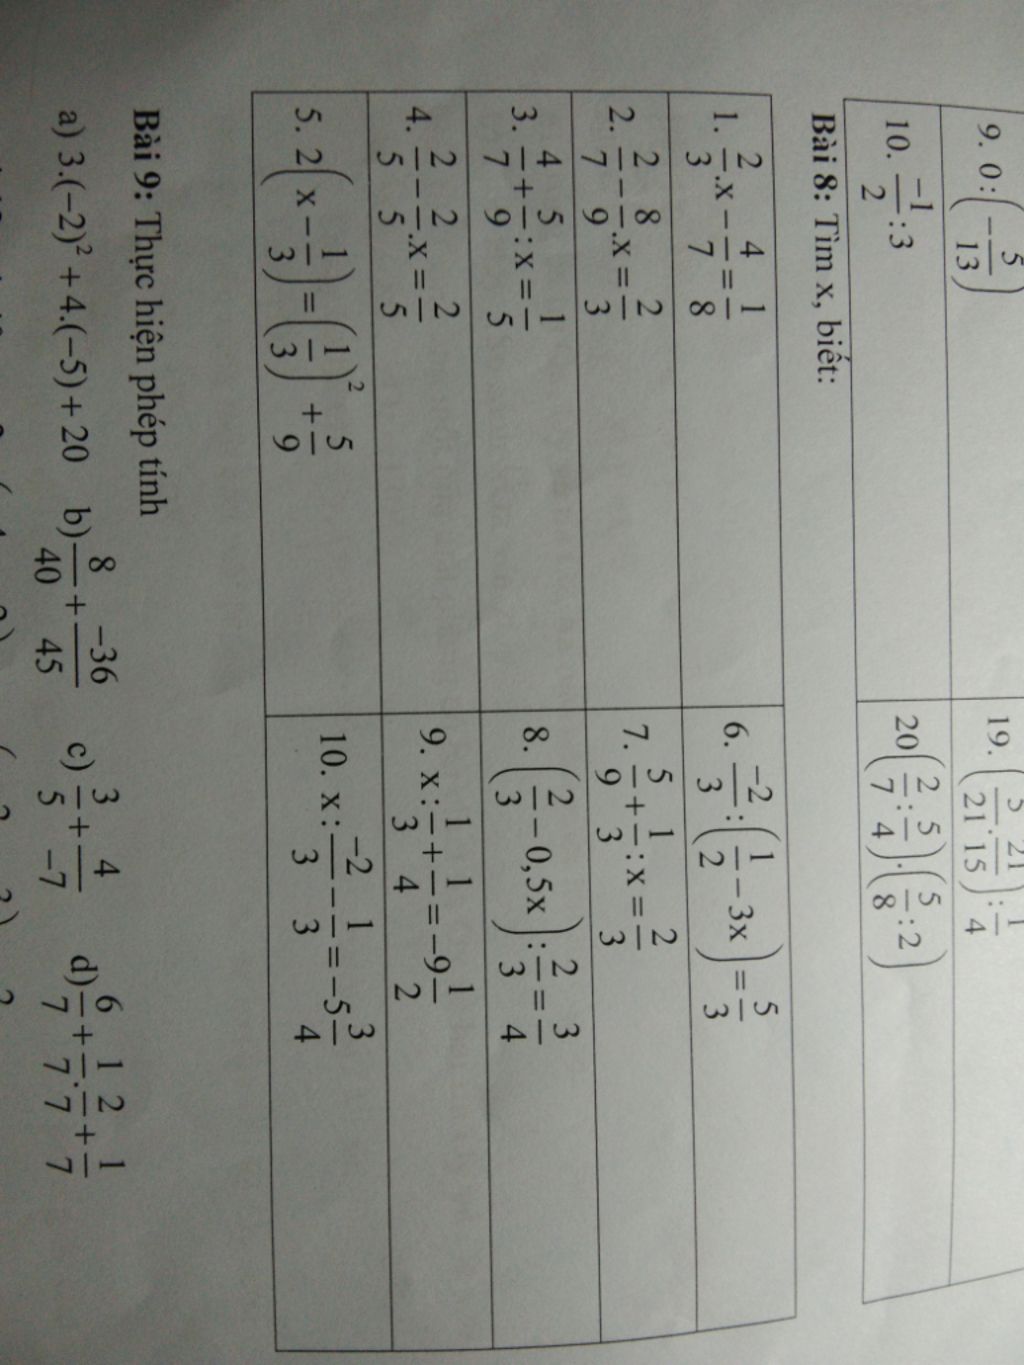 9. 0:(-5/13)
19. (5/21.21/15):1/4
10. -1/2:3
20(2/7:5/4).(5/8:2)
Bài 8: Tìm x, biết:
1. 2/3.x-4/7=1/8
6. -2/3:(1/2-3x)=5/3
2. 2/7-8/9.x=2/3
7. 5/9+1/3:x=2/3
3. 4/7+5/9:x=1/5
8. (2/3-0,5x):2/3=3/4
4. 2/5-2/5.x=2/5
9. x:1/3+1/4=-9 1/2
5. 2(x-1/3)=(1/3)²+5/9
10. x:-2/3-1/3=-5 3/4
Bài 9: Thực hiện phép tính
a) 3.(-2)²+4.(-5)+20 b) 8/40+-36/45 c) 3/5+4/-7 d) 6/7+1/7.2/7+1/7